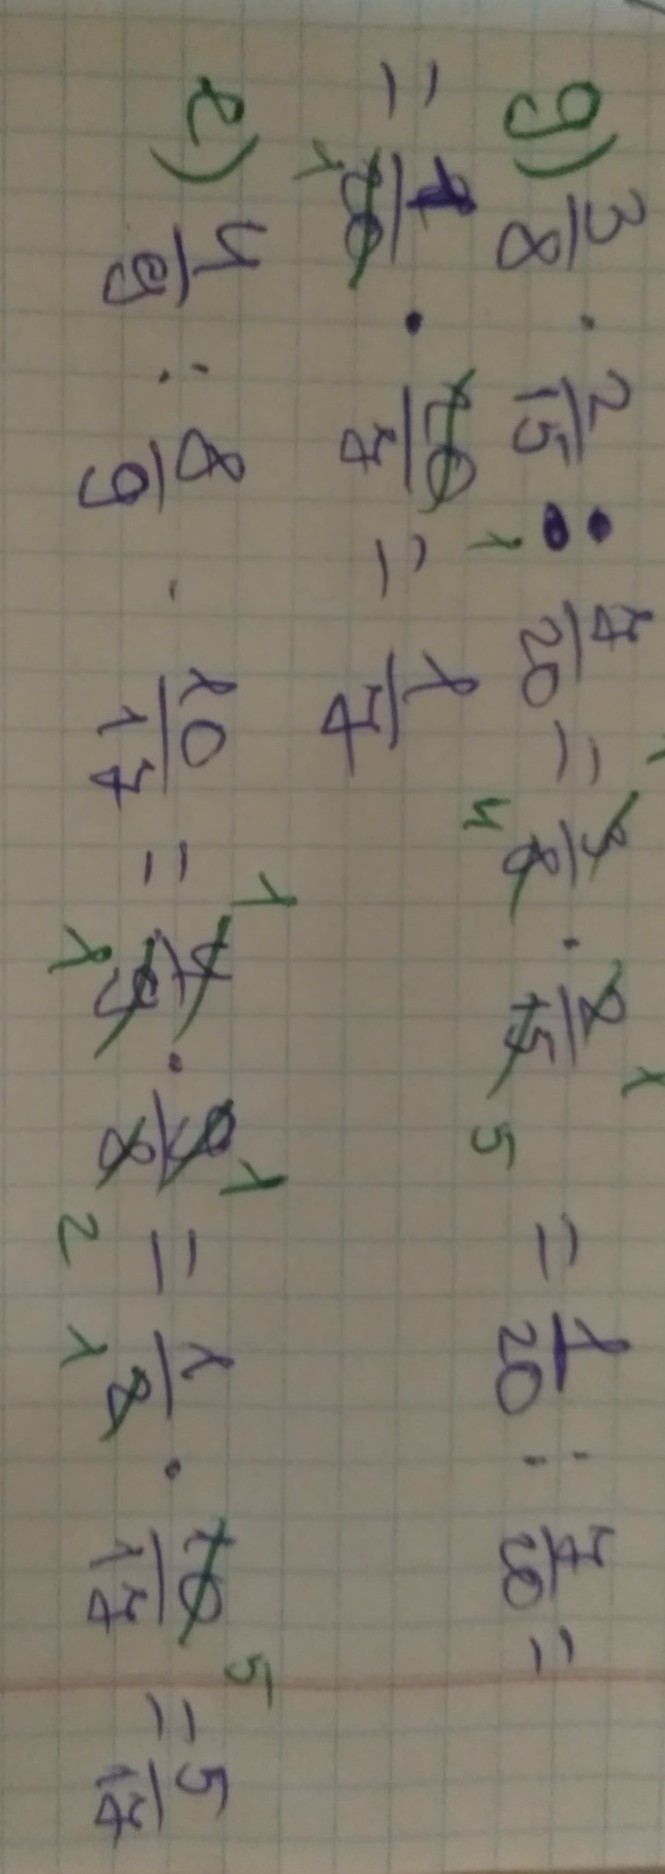 g) 3/8 · 2/15 : 7/20 = 3/8 · 2/15 = 1/20 : 7/20 =
= 1/20 · 20/7 = 1/7
e) 4/9 : 8/9 · 10/17 = 4/9 · 9/8 = 1/2 · 10/17 = 5/17